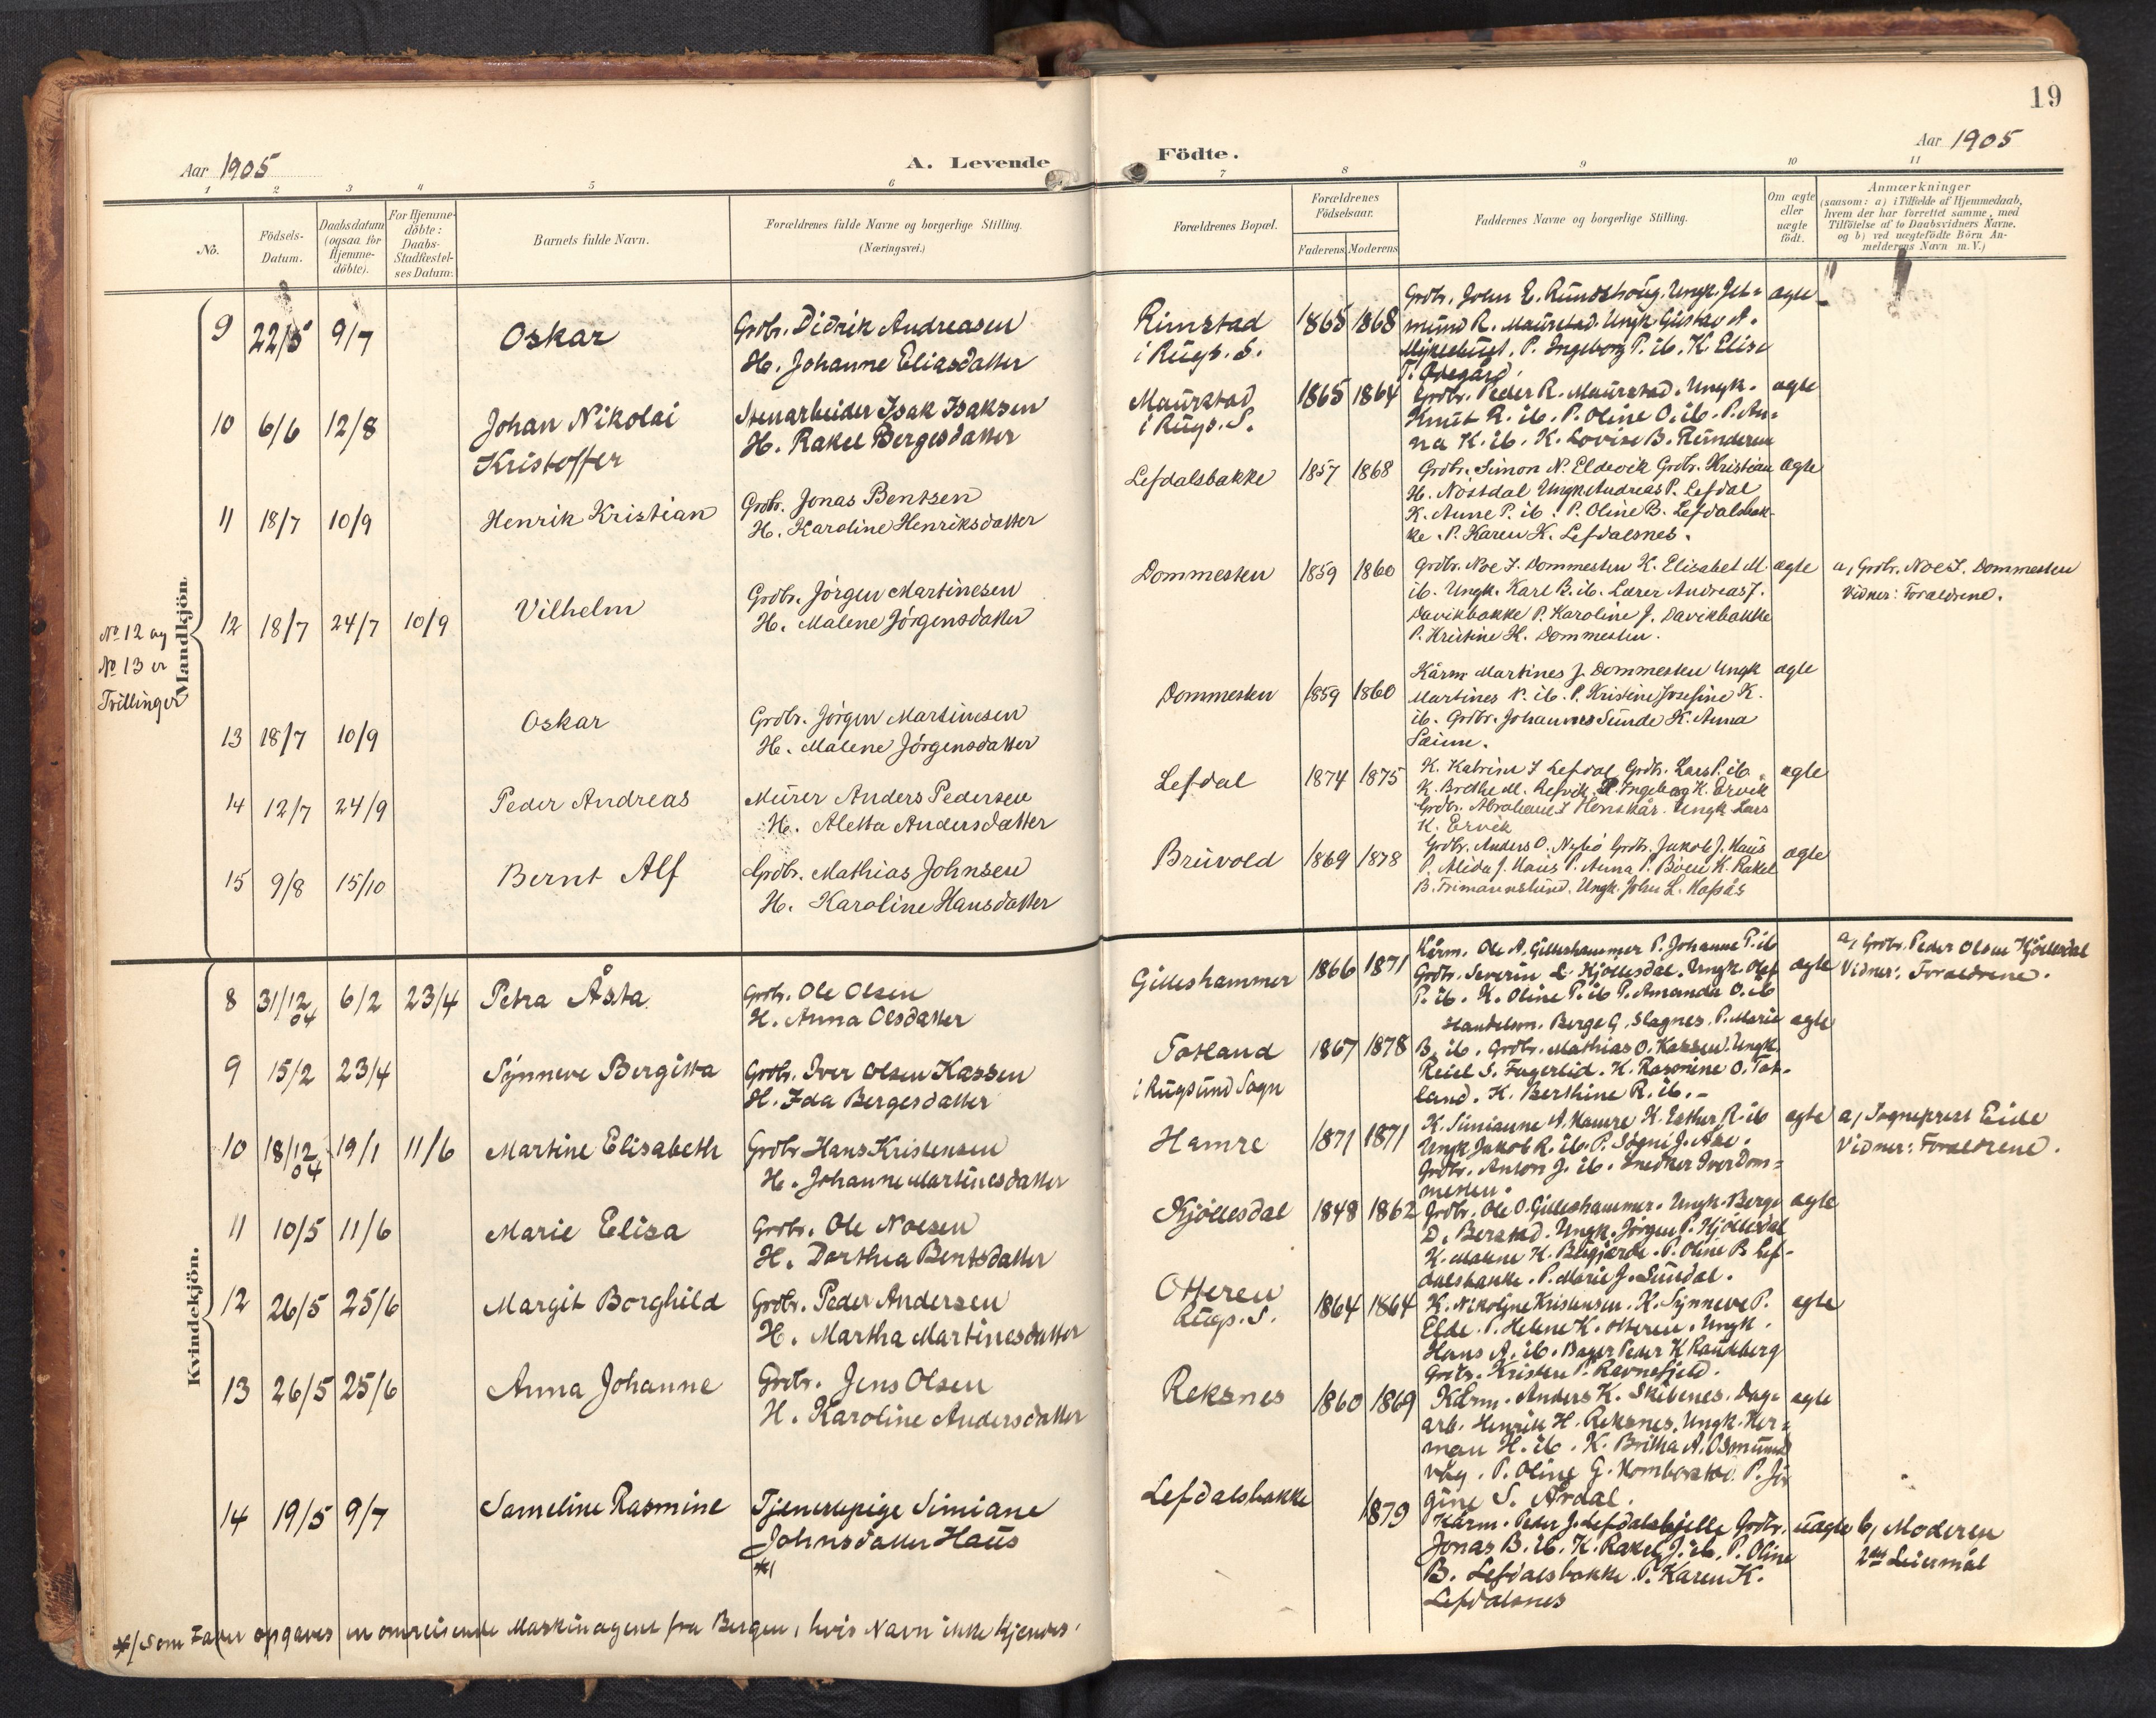 19
Aar 1905
A. Levende
Födte.
Aar 1905
1 2 3 4 5 6 7 8 9 10 11
No.
Födsels-
Datum.
Daabsdatum
(ogsaa for
Hjemme-
döbte).
For Hjemme-
döbte:
Daabs-
Stadfæstel-
ses Datum.
Barnets fulde Navn.
Forældrenes fulde Navne og borgerlige Stilling.
(Næringsvei.)
Forældrenes Bopæl.
Forældrenes
Födselsaar.
Faderens Moderens
Faddernes Navne og borgerlige Stilling.
Om ægte
eller
uægte
födt.
Anmærkninger
(saasom: a) i Tilfælde af Hjemmedaab,
hvem der har forrettet samme, med
Tilföielse af to Daabsvidners Navne,
og b) ved uægtefödte Börn An-
melderens Navn m. V.)
Mandkjön.
No 12 og
No 13 er
Tvillinger
9 22/5 9/7
Oskar
Grdbr. Didrik Andreasen
H. Johanne Eliasdatter
Rimstad
i Rugs. S.
1865 1868
Grdbr. John E. Rundehoug. Ungk. Jet=
mund R. Maurstad. Ungk. Gustav A.
Myklebust. P. Ingeborg T. ib. K. Elise
T. Ødegård.
ægte
10 6/6 12/8
Johan Nikolai
Kristoffer
Stenarbeider Isak Isaksen
H. Rakel Bergesdatter
Maurstad
i Rugs. S.
1865 1864
Grdbr. Peder R. Maurstad. Ungk.
Knut R. ib. P. Oline O. ib. P. An=
na K. ib. K. Lovise B. Rundereim
ægte
11 18/7 10/9
Henrik Kristian
Grdbr. Jonas Bentsen
H. Karoline Henriksdatter
Lefdalsbakke
1857 1868
Grdbr. Simon N. Eldevik Grdbr. Kristian
H. Nöstdal Ungk. Andreas P. Lefdal
K. Anne P. ib. P. Oline B. Lefdalsbak-
ke. P. Karen K. Lefdalsnes.
ægte
12 18/7 24/7 10/9
Vilhelm
Grdbr. Jörgen Martinesen
H. Malene Jörgensdatter
Dommesten
1859 1860
Grdbr. Noe J. Dommesten K. Elisabet M.
ib. Ungk. Karl B. ib. Lærer Andreas J.
Davikbakke P. Karoline J. Davikbakke
P. Kristine K. Dommesten.
ægte
a, Grdbr. Noe J. Dommesten
Vidner: Forældrene.
13 18/7 10/9
Oskar
Grdbr. Jörgen Martinesen
H. Malene Jörgensdatter
Dommesten
1859 1860
Kårm. Martines J. Dommesten Ungk
Martines N. ib. P. Kristine Josefine K.
ib. Grdbr. Johannes Sunde K. Anna
Sæime.
ægte
14 12/7 24/9
Peder Andreas
Murer Anders Pedersen
H. Aletta Andersdatter
Lefdal
1874 1875
K. Katrine J Lefdal Grdbr. Lars P. ib
K. Brethe M. Refvik. P. Ingeborg K. Ervik
Grdbr. Abraham J Henskår. Ungk Lars
K. Ervik
ægte
15 9/8 15/10
Bernt Alf
Grdbr. Mathias Johnsen
H. Karoline Hansdatter
Bruvold
1869 1878
Grdbr. Anders O. Nybö Grdbr. Jakob J. Haus
P. Alida J. Haus P. Anna P. Böen K. Rakel
B. Frimannslund. Ungk. John L. Hafsås
ægte
Kvindekjön.
8 31/12 04 6/2 23/4
Petra Åsta
Grdbr. Ole Olsen
H. Anna Olsdatter
Gilleshammer
1866 1871
Kårm. Ole A. Gilleshammer P. Johanne P. ib
Grdbr. Severin L. Kjöllesdal. Ungk Olaf
P. ib. K. Oline P. ib P. Amanda O. ib
ægte
a, Grdbr. Peder Olsen Kjöllesdal
Vidner: Forældrene.
9 15/2 23/4
Synneve Bergitta
Grdbr. Iver Olsen Kassen
H. Ida Bergesdatter
Totland
i Rugsund Sogn
1867 1878
Handelsm. Berge G. Slagnes. P. Marie
B. ib. Grdbr. Mathias O. Kassen. Ungk.
Reiel S. Fagerlid. K. Rasmine O. Tot-
land. K. Berthine R. ib.
ægte
10 18/12 04 19/1 11/6
Martine Elisabeth
Grdbr. Hans Kristensen
H. Johanne Martinesdatter
Hamre
1871 1871
K. Simianne A. Hamre K. Esther R. ib
Ungk Jakob R. ib. P. Sögni J. Åse.
Grdbr. Anton J. ib. Snedker Iver Dom=
mesten.
ægte
a, Sogneprest Eide
Vidner: Forældrene.
11 10/5 11/6
Marie Elisa
Grdbr. Ole Noesen
H. Dorthea Bentsdatter
Kjöllesdal
1848 1862
Grdbr. Ole O. Gilleshammer. Ungk. Berge
D. Berstad. Ungk. Jörgen P. Kjöllesdal
K. Malene K. P. Oline B. Lef-
dalsbakke. P. Marie J. Sundal.
ægte
12 26/5 25/6
Margit Borghild
Grdbr. Peder Andersen
H. Martha Martinesdatter
Otteren
Rugs. S.
1864 1864
K. Nikoline Kristensen. K. Synneve P.
Elde. P. Helene K. Otteren. Ungk.
Hans A. ib. Bager Peder K Raudeberg
Grdbr. Kristen P. Ravnefjeld.
ægte
13 26/5 25/6
Anna Johanne
Grdbr. Jens Olsen
H. Karoline Andersdatter
Reksnes
1860 1869
Kårm. Anders K. Skibenes. Dag-
arb. Henrik H. Reksnes. Ungk. Her=
man H. ib. K. Britha A. Osmund
våg. P. Oline G. Homborstad. P. Jör
gine S. Årdal.
ægte
14 19/5 9/7
Sameline Rasmine
Tjenestepige Simiane
Johnsdatter Haus
*)
Lefdalsbakke
1879
Kårm. Peder J. Lefdalshjelle Grdbr.
Jonas B. ib. K. Rakel J. ib. P. Oline
B. Lefdalsbakke. P. Karen K.
Lefdalsnes
uægte
b, Moderen
2det Leiermål
*) Som Fader opgaves en omreisende Maskinagent fra Bergen, hvis Navn ikke kjendes.